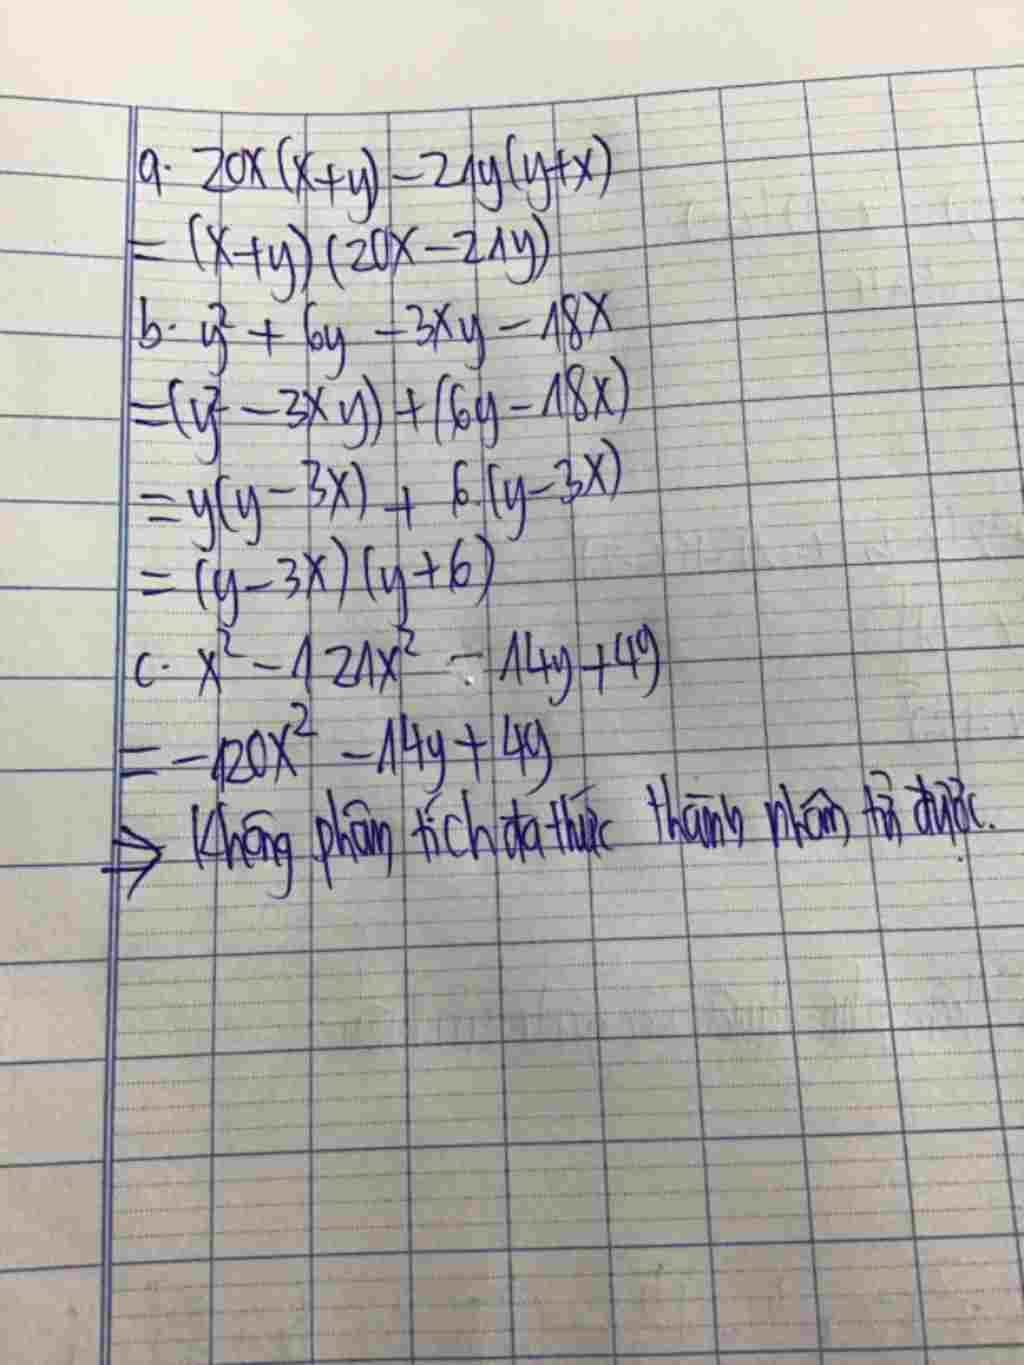 a. 20x(x+y) - 21y(y+x)
= (x+y)(20x-21y)
b. y² + 6y - 3xy - 18x
= (y² - 3xy) + (6y - 18x)
= y(y - 3x) + 6.(y - 3x)
= (y - 3x)(y + 6)
c. x² - 121x² - 14y + 49
= -120x² - 14y + 49
→ Không phân tích đa thức thành nhân tử được.